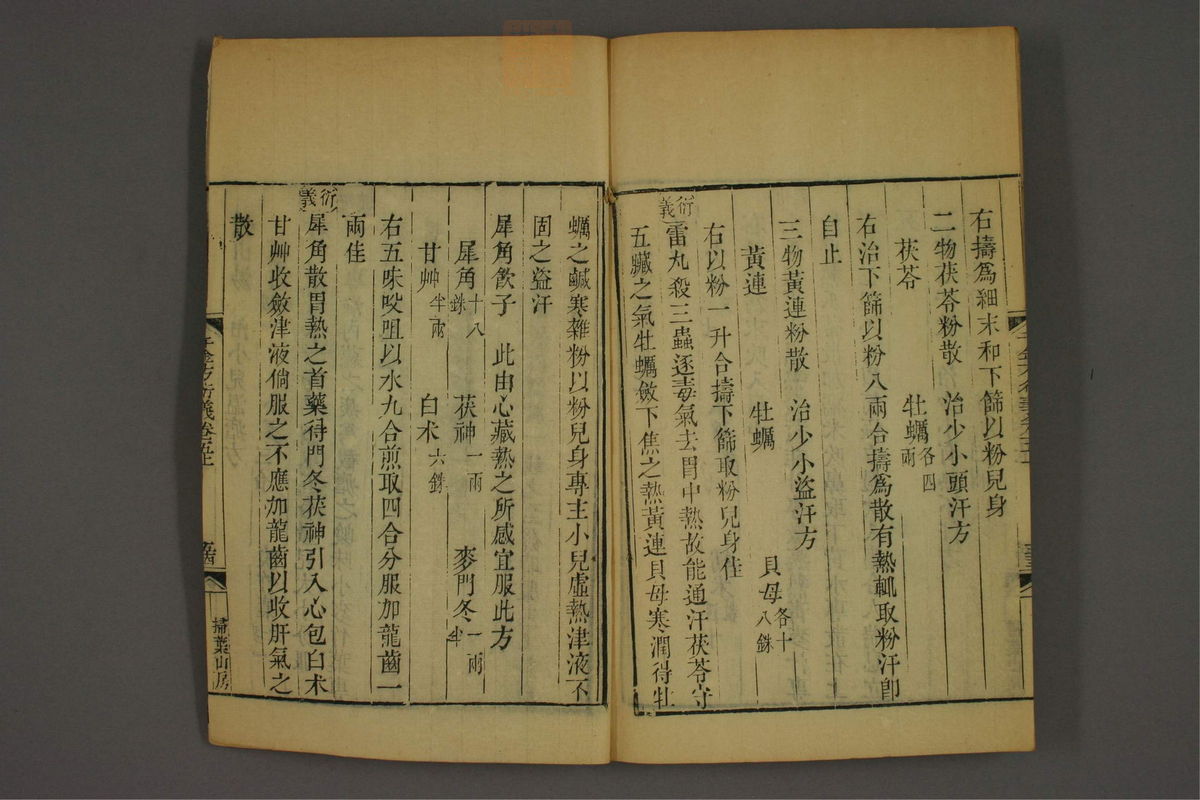 右擣爲細末和下篩以粉兒身
二物茯苓粉散　治少小頭汗方
茯苓　牡蠣各四兩
右治下篩以粉八兩合擣爲散有熱輒取粉汗即
自止
三物黃連粉散　治少小盜汗方
黃連　牡蠣　貝母各十八銖
右以粉一升合擣下篩取粉兒身佳
衍義雷丸殺三蟲逐毒氣去胃中熱故能通汗茯苓守
五臟之氣牡蠣斂下焦之熱黃連貝母寒潤得牡
蠣之鹹寒雜粉以粉兒身專主小兒虛熱津液不
固之盜汗
犀角飲子　此由心藏熱之所感宜服此方
犀角十八銖　茯神一兩　麥門冬一兩半
甘艸半兩　白术六銖
右五味㕮咀以水九合煎取四合分服加龍齒一
兩佳
衍義犀角散胃熱之首藥得門冬茯神引入心包白术
甘艸收斂津液倘服之不應加龍齒以收肝氣之
散
千金方衍義卷五上
掃葉山房